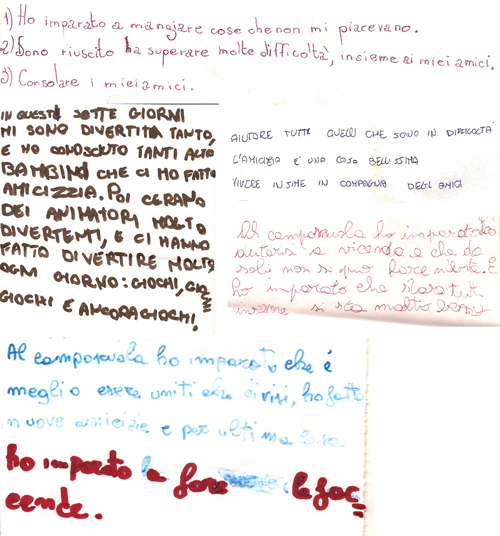 1) Ho imparato a mangiare cose che non mi piacevano.
2) Sono riuscito ha superare molte difficoltà, insieme ai miei amici.
3) Consolare i miei amici.
IN QUESTI SETTE GIORNI
MI SONO DIVERTITA TANTO,
E HO CONOSCIUTO TANTI ALTRI
BAMBINI CHE CI HO FATTO
AMICIZZIA. POI C'ERANO
DEI ANIMATORI MOLTO
DIVERTENTI, E CI HANNO
FATTO DIVERTIRE MOLTO
OGNI GIORNO: GIOCHI, GIOCHI
GIOCHI E ANCORA GIOCHI!
AIUTORE TUTTI QUELLI CHE SONO IN DIFFICOLTÀ
L'AMICIZIA È UNA COSA BELLISSIMA
VIVERE INSIME IN COMPAGNIA DEGLI AMICI
Al camposcuola ho imparato
aiutarsi a vicenda e che da
soli non si può fare niente. E
ho imparato che stare tutti
insieme si sta molto bene
Al camposcuola ho imparato che è
meglio essere uniti che divisi, ho fatto
nuove amicizie e per ultima cosa
ho imparato la fare le fac
cende.